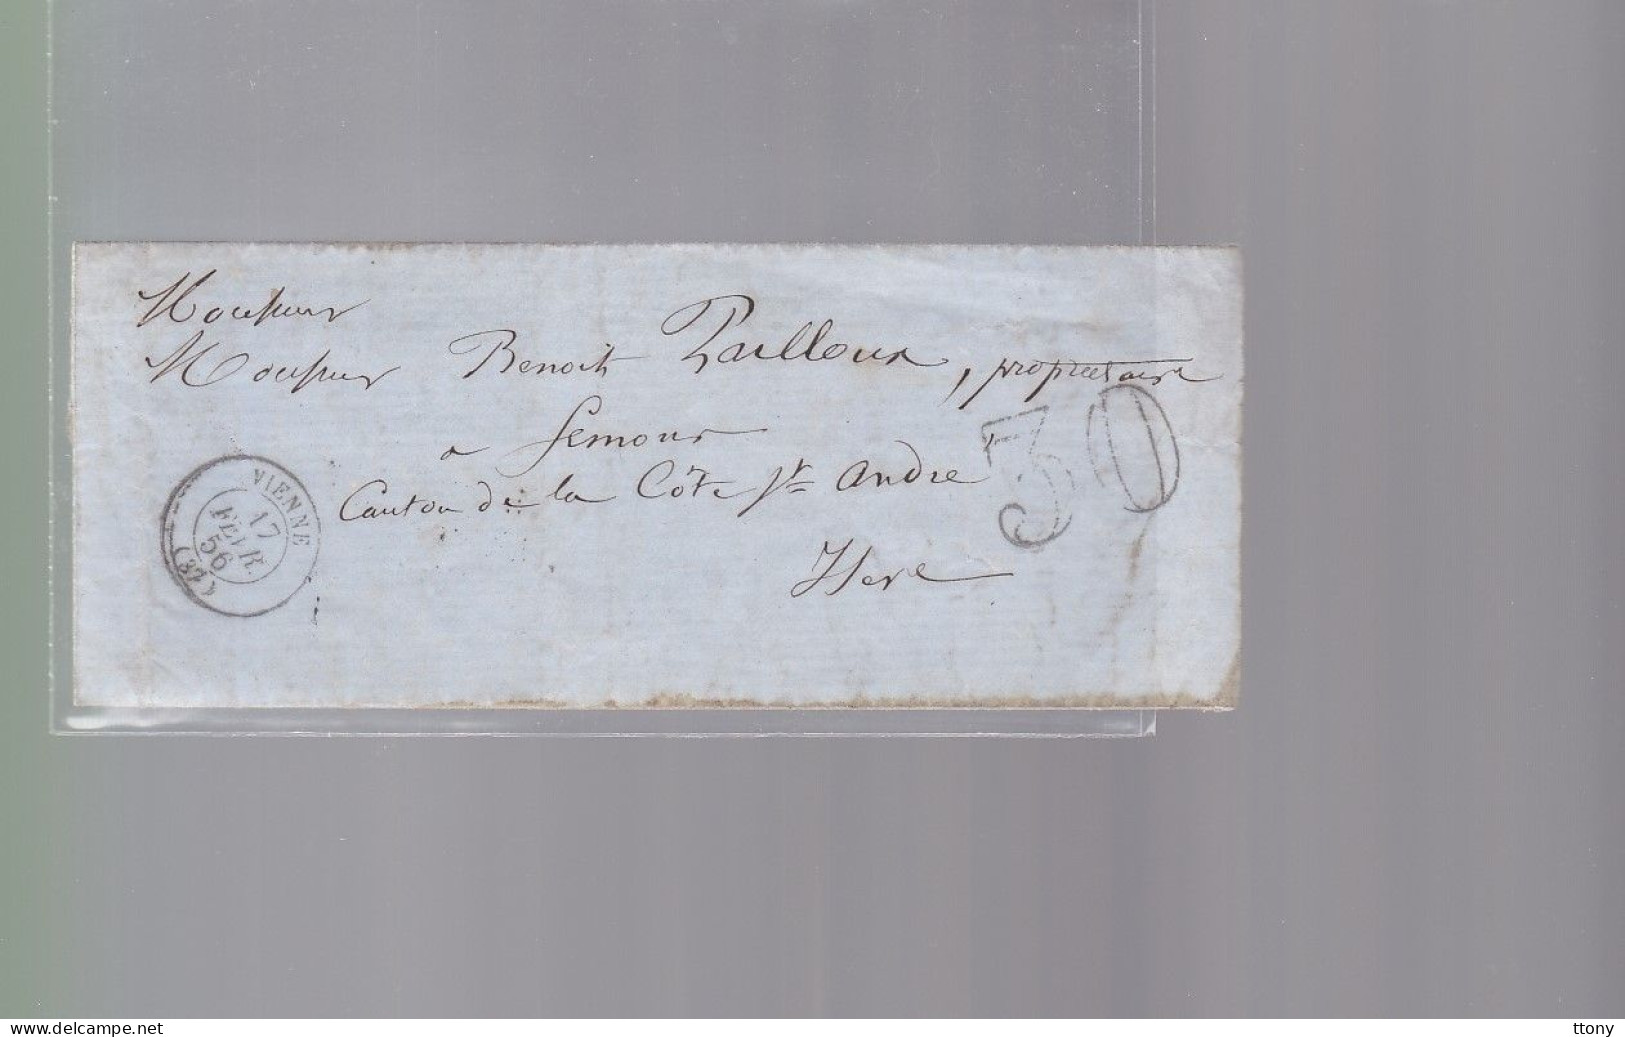 Monsieur
Monsieur Benoit Pailloux, propriétaire
a Semons
Canton de la Côte St André
Isere
30
VIENNE
17
FEVR.
56
(37)
www.delcampe.net
ttony